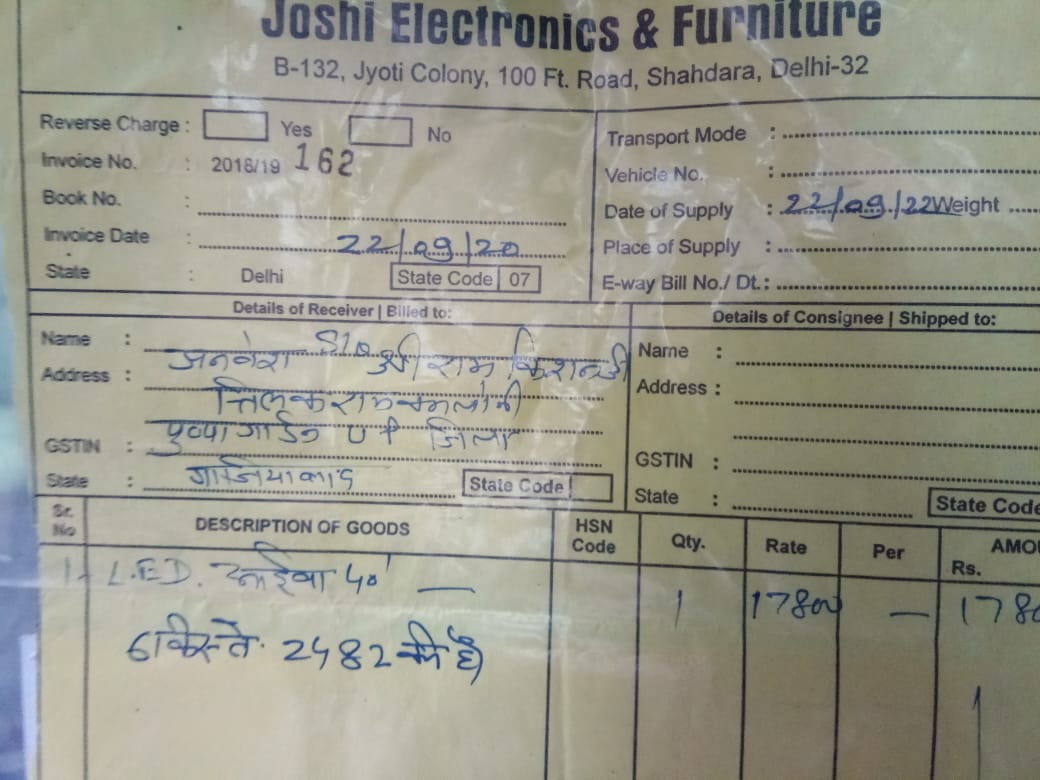 Joshi Electronics & Furniture
B-132, Jyoti Colony, 100 Ft. Road, Shahdara, Delhi-32
Reverse Charge : Yes No
Invoice No. : 2018/19 162
Book No. :
Invoice Date : 22/09/20
State : Delhi State Code 07
Transport Mode :
Vehicle No. :
Date of Supply : 22/09/22 Weight
Place of Supply :
E-way Bill No./ Dt.:
Details of Receiver | Billed to:
Name : S/o श्री राम किशन जी
Address :
GSTIN : U P जिला
State : गाजियाबाद State Code
Details of Consignee | Shipped to:
Name :
Address :
GSTIN :
State : State Code
Sr. No DESCRIPTION OF GOODS HSN Code Qty. Rate Per AMOU
Rs.
1- L.E.D. आईवा 40" — 1 17800 — 1780
6 किस्ते 2482 की है